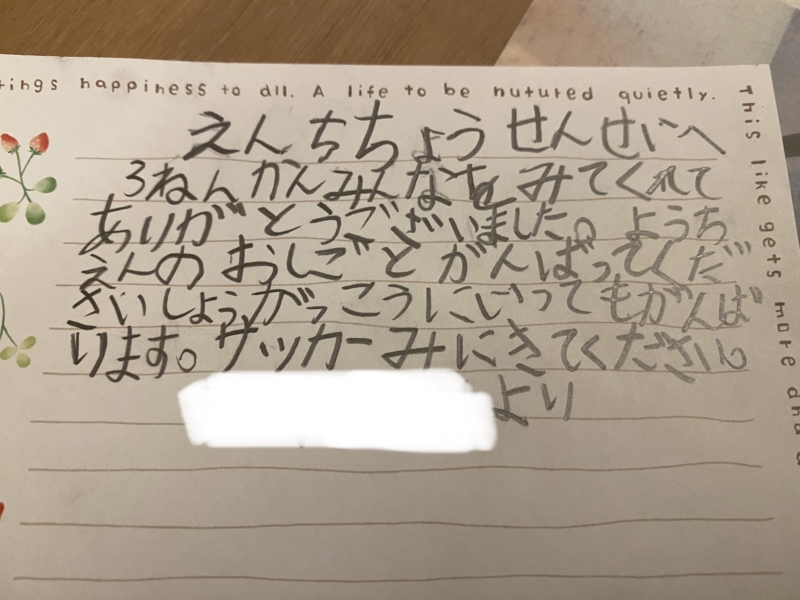 ings happiness to all. A life to be nutured quietly.
This like gets more and a
えんちちょうせんせいへ
3ねんかんみんなを みてくれて
ありがとうございました。ようち
えんのおしごとがんばってくだ
さいしょうがっこうにいってもがんば
ります。サッカーみにきてください。
より